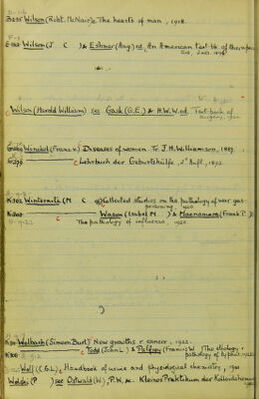 B235 Wilson (Robt. McNair). The hearts of man, 1918.
Wilson (J C ) & Eshner (Aug) ed, An American text-bk. of
Wilson (Harold William) see Gask (G.E.) & H.W.W. ed. Text-book of
surgery, 1920
Winckel (Franz v.) Diseases of women. Tr J.H. Williamson, 1887.
Lehrbuch der Geburtshülfe, 2e Aufl., 1893.
Winternitz (M C ) Collected studies on the pathology of war gas
poisoning, 1920
Wason (Isabel M ) & Macnamara (Frank P )
The pathology of influenza, 1920.
Wolbach (Simeon Burt) New growths & cancer, 1922.
Todd (John L) & Palfrey (Francis W ) The etiology &
pathology of typhus, 1922
Wolf (C.G.L), Handbook of urine and physiological chemistry, 1901
Wolski (P ) see Ostwald (W), P.W. & Kleines Praktikum der Kolloidchemie